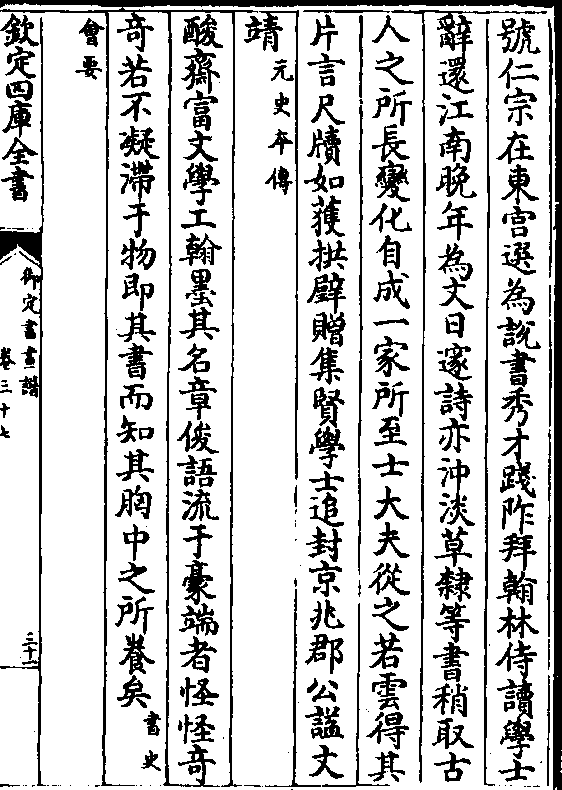 號仁宗在東宮選為說書秀才踐阼拜翰林侍讀學士
辭還江南晚年為文日邃詩亦沖淡草隸等書稍取古
人之所長變化自成一家所至士大夫從之若雲得其
片言尺牘如獲拱璧贈集賢學士追封京兆郡公諡文
靖元史本傳
酸齋富文學工翰墨其名章俊語流于豪端者怪怪奇
奇若不凝滯于物即其書而知其胸中之所養矣書史
會要
欽定四庫全書
御定書畫譜
卷三十七
三十二